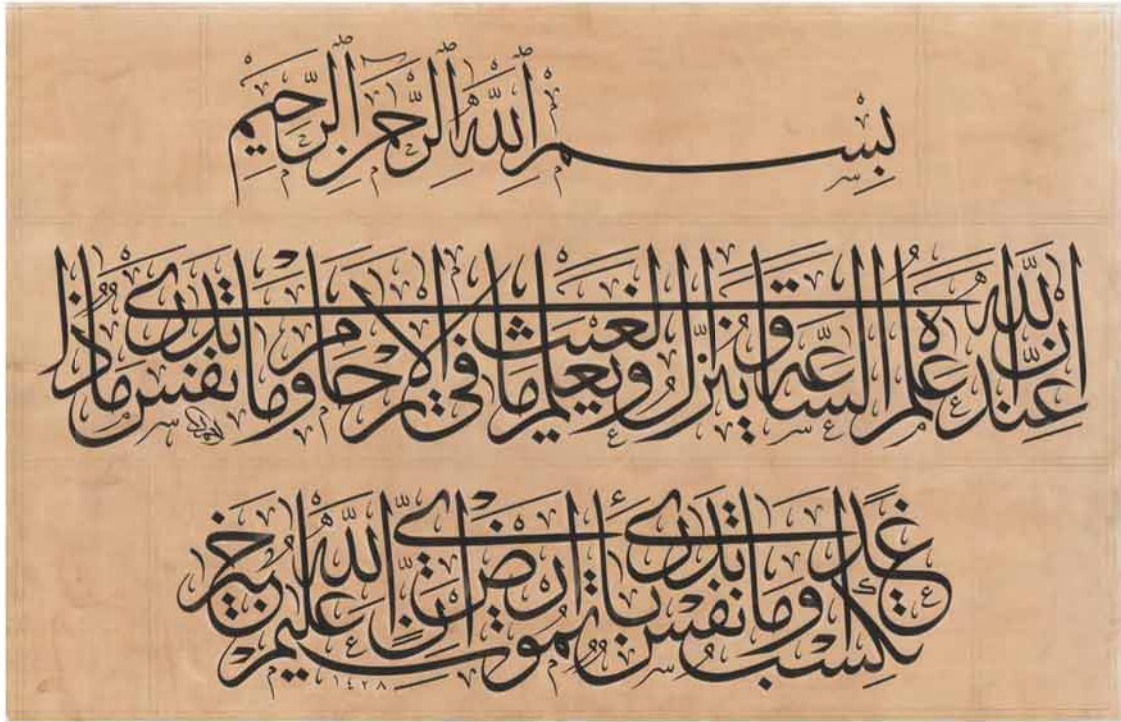 بِسْمِ اللَّهِ الرَّحْمَٰنِ الرَّحِيمِ
إِنَّ اللَّهَ عِنْدَهُ عِلْمُ السَّاعَةِ وَيُنَزِّلُ الْغَيْثَ وَيَعْلَمُ مَا فِي الْأَرْحَامِ وَمَا تَدْرِي نَفْسٌ مَاذَا
تَكْسِبُ غَدًا وَمَا تَدْرِي نَفْسٌ بِأَيِّ أَرْضٍ تَمُوتُ إِنَّ اللَّهَ عَلِيمٌ خَبِيرٌ
١٤٢٨